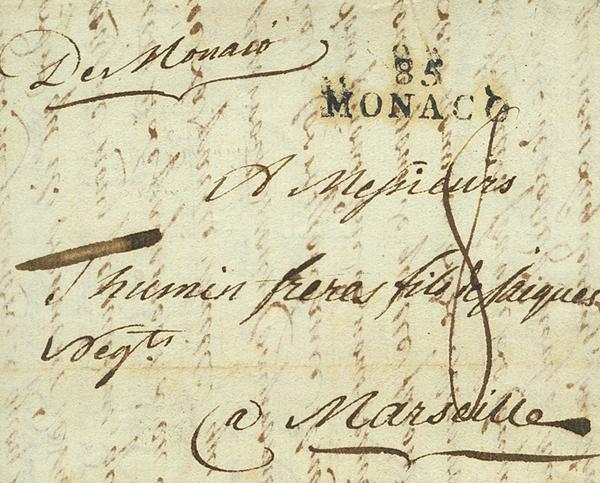 De Monaco
85
MONACO
A Messieurs
Thumin freres fils de Jaiques
Negts
a Marseille